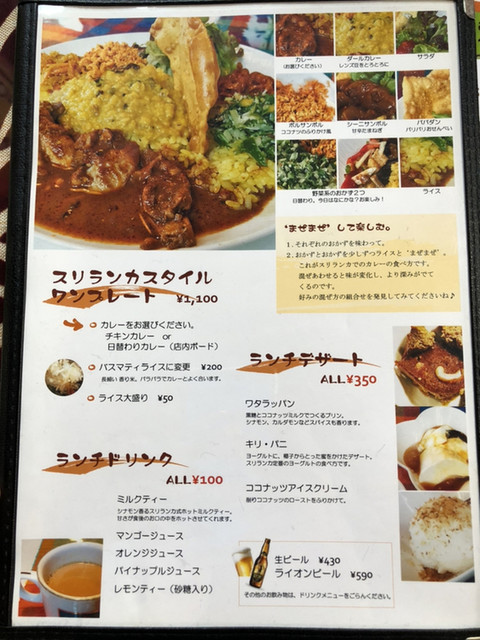 カレー
(お選びください)
ダールカレー
レンズ豆をとろとろに
サラダ
ポルサンボル
ココナツのふりかけ風
シーニサンボル
甘辛たまねぎ
パパダン
パリパリおせんべい
野菜系のおかず2つ
日替わり。今日はなにかな？お楽しみ！
ライス
"まぜまぜ" して楽しむ。
1. それぞれのおかずを味わって。
2. おかずとおかずを少しずつライスと"まぜまぜ"。
これがスリランカでのカレーの食べ方です。
混ぜあわせると味が変化し、より深みがでて
くるのです。
好みの混ぜ方の組合せを発見してみてくださいね♪
スリランカスタイル
ワンプレート ¥1,100
カレーをお選びください。
チキンカレー or
日替わりカレー（店内ボード）
バスマティライスに変更 ¥200
長細い香り米。パラパラでカレーとよく合います。
ライス大盛り ¥50
ランチデザート
ALL¥350
ワタラッパン
黒糖とココナッツミルクでつくるプリン。
シナモン、カルダモンなどスパイスも香ります。
キリ・パニ
ヨーグルトに、椰子からとった蜜をかけたデザート。
スリランカ定番のヨーグルトの食べ方です。
ココナッツアイスクリーム
削りココナッツのローストをふりかけて。
ランチドリンク
ALL¥100
ミルクティー
シナモン香るスリランカ式ホットミルクティー。
甘さが食後のお口の中をホットさせてくれます。
マンゴージュース
オレンジジュース
パイナップルジュース
レモンティー（砂糖入り）
生ビール ¥430
ライオンビール ¥590
その他のお飲み物は、ドリンクメニューをごらんください。